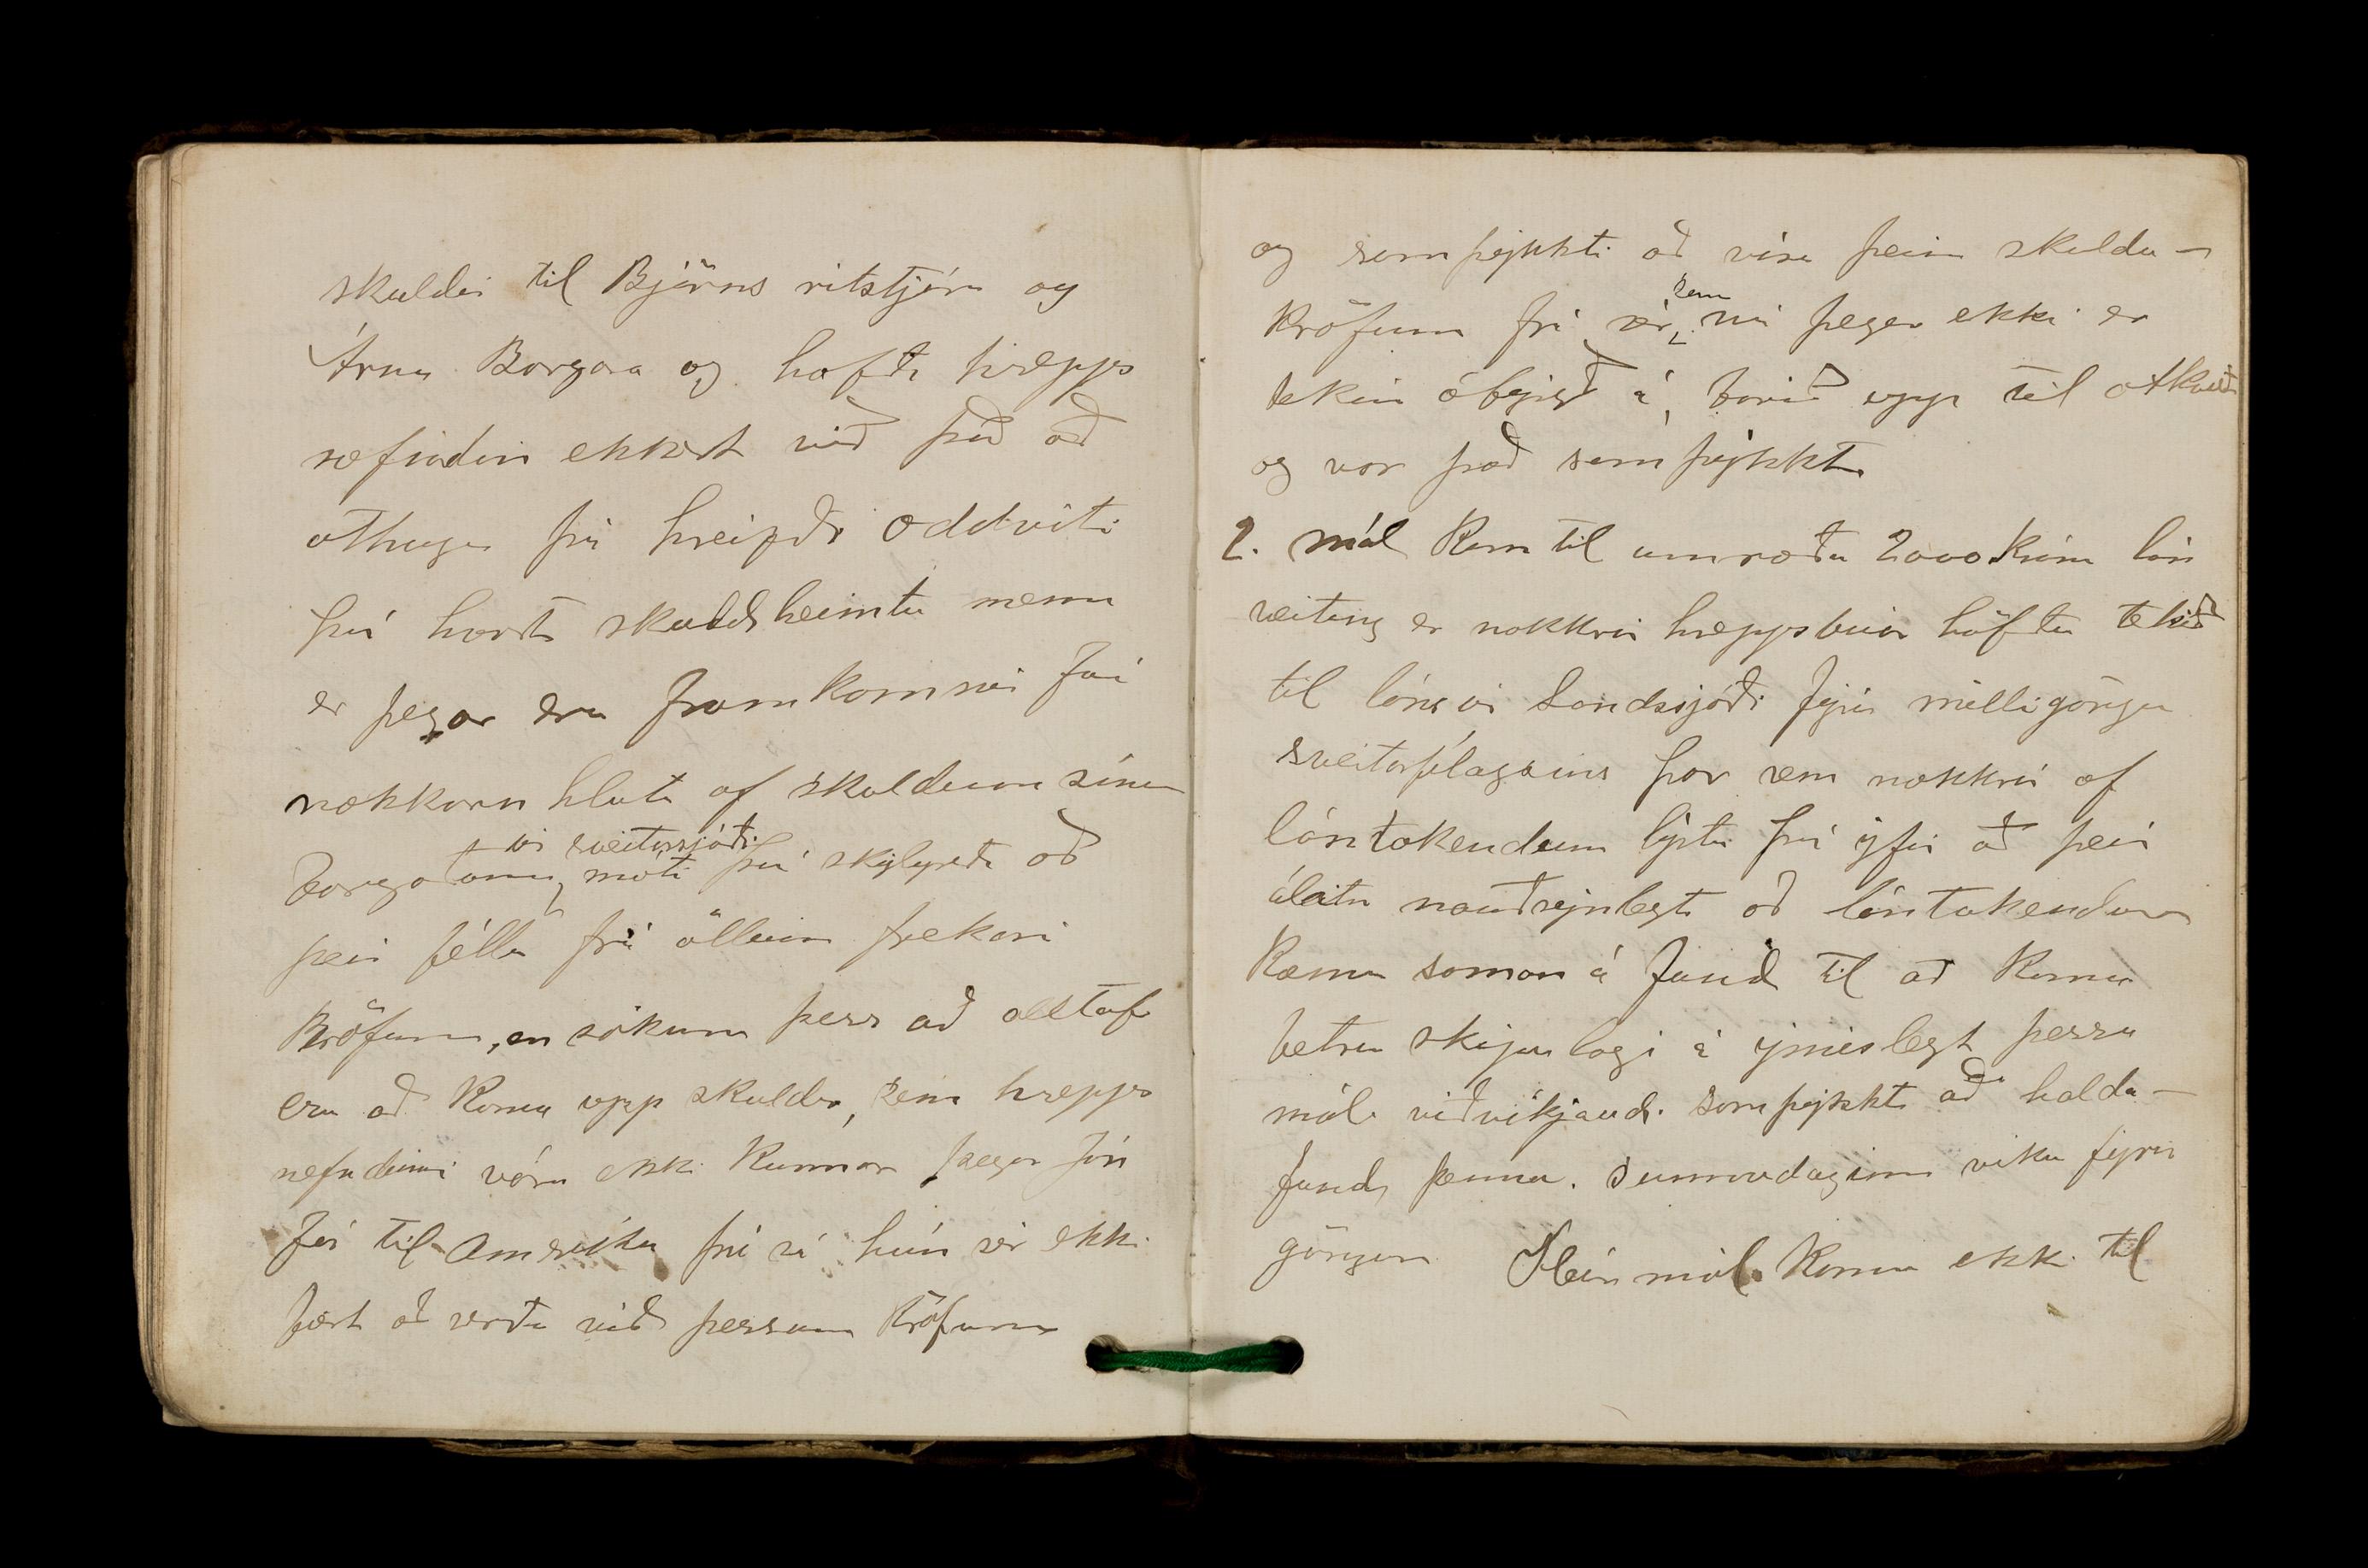 skuldir til Björns ritstjóra og
Árna Borgara og hafði hrepps
nefndin ekkert við það að
athuga þá hreifði oddviti
því hvort skuldheimtu menn
er þegar eru framkomnir fái
nokkurn hluta af skuldum sínum
borgaðann úr sveitarsjóði móti því skylyrði að
þeir félla frá öllum frekari
kröfum, en sökum þess að alltaf
eru að koma upp skuldir, sem hrepps
nefndinni vóru ekki kunnar þegar Jón
fór til Ameríku því sá hún sér ekki
fært að verða við þessum kröfum
og samþykkti að vísa þeim skulda-
kröfum frá sér sem nú þegar ekki er
tekin ábyrgð á, borið upp til atkvæða
og var það samþykkt.
2. mál Kom til umræðu 2000 króna lán
veiting er nokkrir hreppsbúar höfðu tekið
til láns úr Landssjóði fyrir milligöngu
sveitarfélagsins þar sem nokkrir af
lántakendum lýstu því yfir að þeir
álitu nauðsynlegt að lántakendur
kæmu saman á fund til að koma
betra skipulagi á ýmislegt þessu
máli viðvíkjandi. Samþykkt að halda-
fund þennan. Sunnudaginn viku fyrir
göngur. Fleiri mál komu ekki til